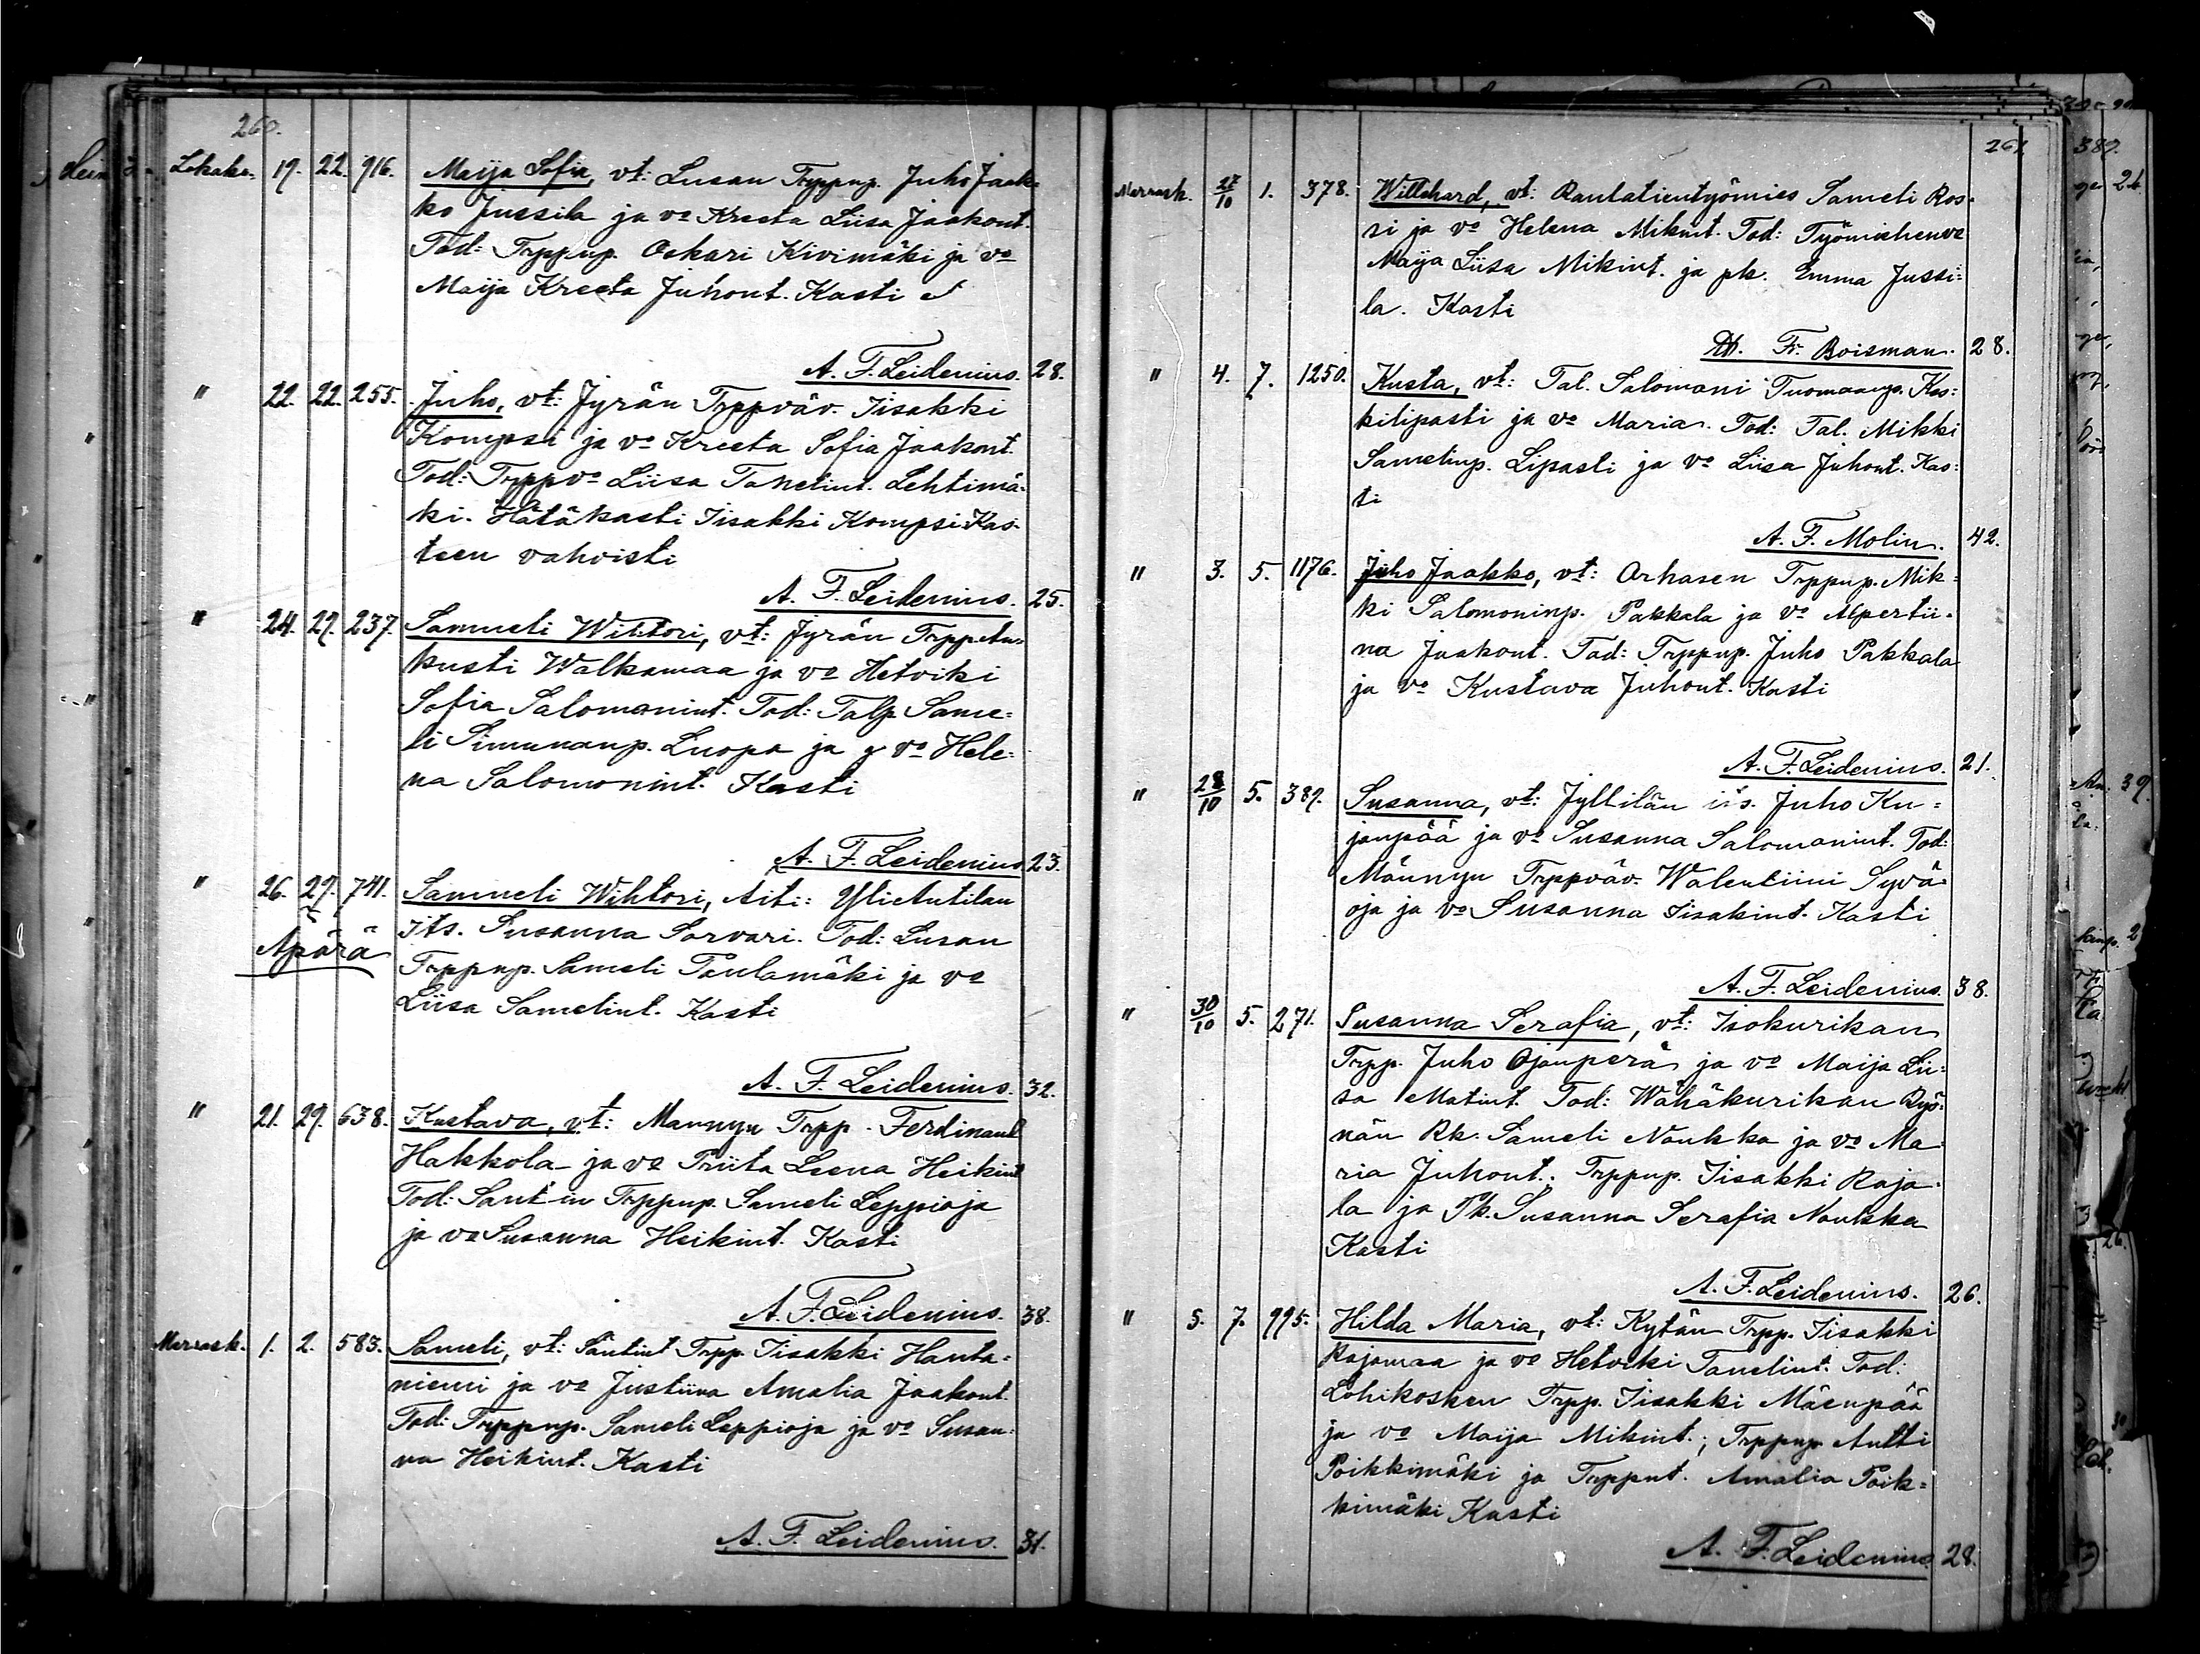 260.
Lokak. 19. 22. 916. Maija Sofia, vt: Lusan Trppup. Juho Jaak-
ko Jussila ja vo Kreeta Liisa Jaakont.
Tod: Trppup. Oskari Kivimäki ja vo
Maija Kreeta Juhont. Kasti
A. F. Leidenius. 28.
" 22. 22. 255. Juho, vt: Jyrän Trppväv. Iisakki
Kompsi ja vo Kreeta Sofia Jaakont.
Tod: Trppvo Liisa Tanelint. Lehtimä-
ki. Hätäkasti Iisakki Kompsi Kas-
teen vahvisti
A. F. Leidenius. 25.
" 24. 29. 237. Sammeli Wihtori, vt: Jyrän Trpp Au-
kusti Walkamaa ja vo Hetviki
Sofia Salomonint. Tod: Talp. Same-
li Simunanp. Luopa ja vo Hele-
na Salomonint. Kasti
A. F. Leidenius 23.
" 26. 29. 741. Sammeli Wihtori, Äiti: YliAntilan
its. Susanna Sarvari. Tod: Lusan
Äpärä
Trppup. Sameli Paulamäki ja vo
Liisa Samelint. Kasti
A. F. Leidenius. 32.
" 21. 29. 638. Kustava, vt: Mannyn Trpp. Ferdinant
Hakkola ja vo Priita Leena Heikint
Tod: Santin Trppup. Sameli Leppioja
ja vo Susanna Heikint. Kasti
A. F. Leidenius. 38.
Marrask. 1. 2. 583. Sameli, vt: Säntint Trpp. Iisakki Hauta-
niemi ja vo Justiina Amalia Jaakont.
Tod: Trppup. Sameli Leppioja ja vo Susan-
na Heikint. Kasti
A. F. Leidenius. 31.
261
Marrask. 27/10 1. 378. Willehard, vt: Rautatientyömies Sameli Ros-
si ja vo Helena Mikint. Tod: Työmiehenvo
Maija Liisa Mikint. ja pk. Emma Jussi-
la. Kasti
Fr. Boisman. 28.
" 4. 7. 1250. Kusta, vt: Tal. Salomoni Tuomaanp. Kos-
kilipasti ja vo Maria. Tod: Tal. Mikki
Samelinp. Lipasti ja vo Liisa Juhont. Kas-
ti
A. F. Molin. 42.
" 3. 5. 1176. Juho Jaakko, vt: Orhasen Trppup. Mik-
ki Salomoninp. Pakkala ja vo Alpertii-
na Jaakont. Tod: Trppup. Juho Pakkala
ja vo Kustava Juhont. Kasti
A. F. Leidenius. 21.
" 28/10 5. 389. Susanna, vt: Jyllilän its. Juho Ku-
janpää ja vo Susanna Salomonint. Tod:
Männyn Trppväv. Walentiini Syvä-
oja ja vo Susanna Iisakint. Kasti
A. F. Leidenius. 38.
" 30/10 5. 271. Susanna Serafia, vt: Isokurikan
Trpp. Juho Ojanperä ja vo Maija Lii-
sa Matint. Tod: Wähäkurikan Ryö-
nän Rk. Sameli Noukka ja vo Ma-
ria Juhont.; Trppup. Iisakki Raja-
la ja Pk. Susanna Serafia Noukka
Kasti
A. F. Leidenius. 26.
" 5. 7. 995. Hilda Maria, vt: Kytän Trpp. Iisakki
Rajamaa ja vo Hetviki Tanelint. Tod:
Lohikosken Trpp. Iisakki Mäenpää
ja vo Maija Mikint.; Trppup Antti
Poikkimäki ja Trpput. Amalia Poik-
kimäki Kasti
A. F. Leidenius. 28.